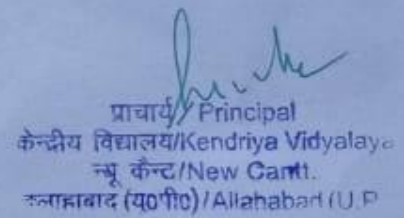 प्राचार्य/Principal
केन्द्रीय विद्यालय/Kendriya Vidyalaya
न्यू कैन्ट/New Cantt.
इलाहाबाद (यू०पी०)/Allahabad (U.P